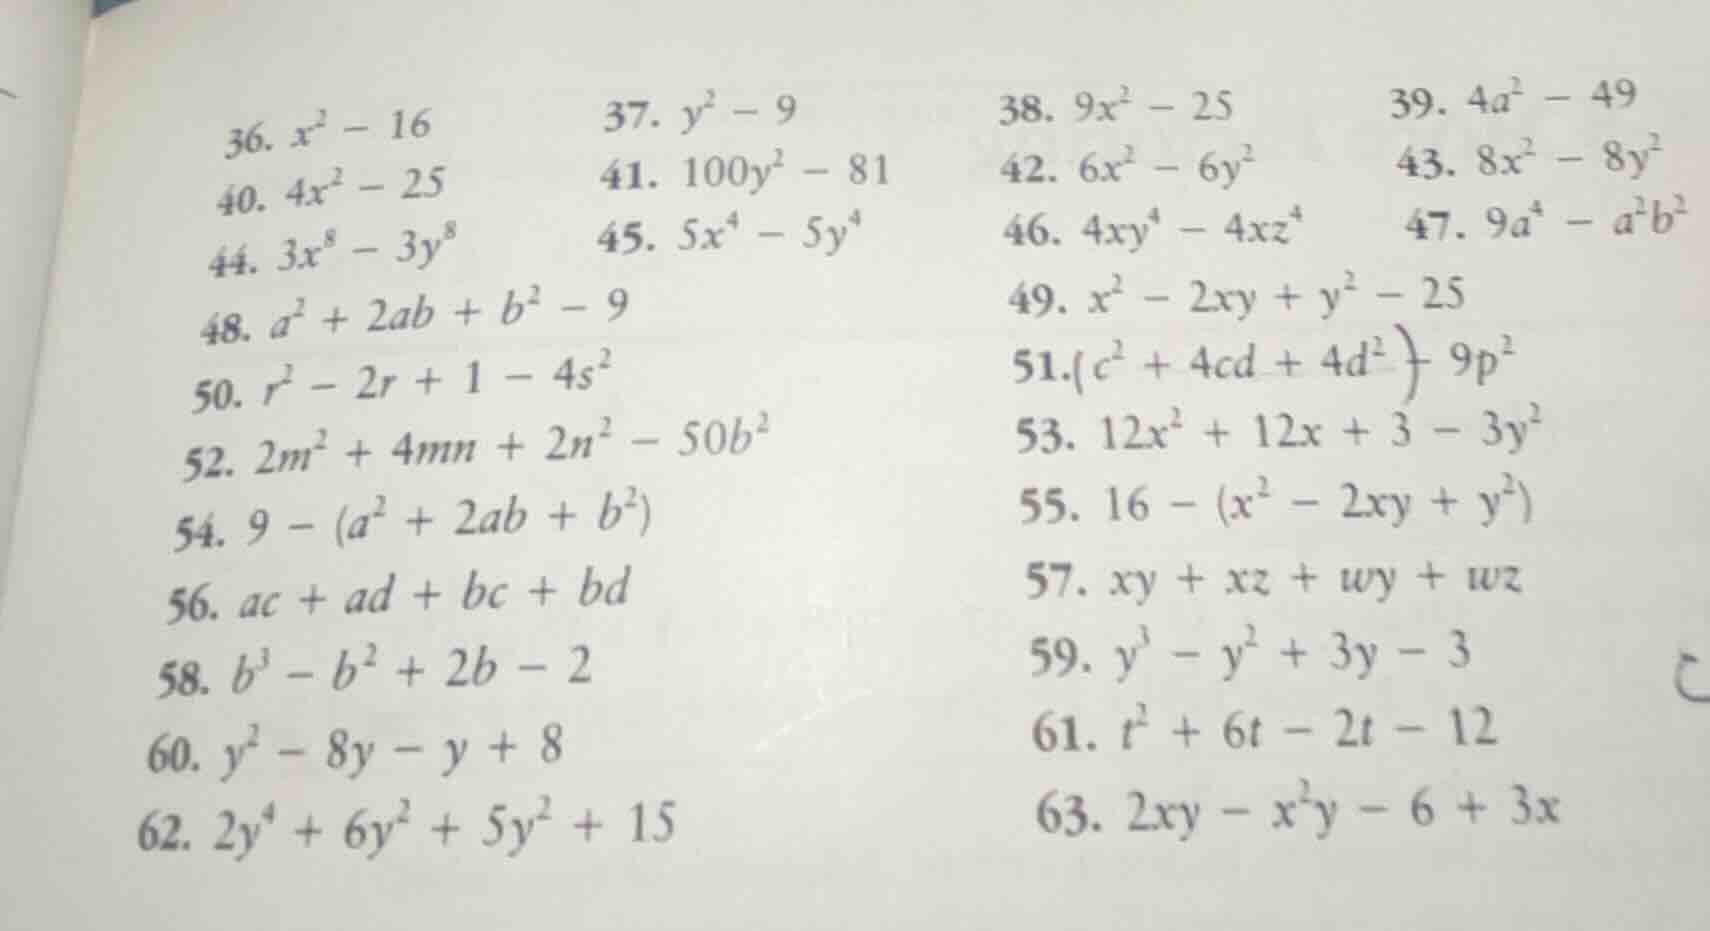 36. x² − 16 37. y² − 9 38. 9x² − 25 39. 4a² − 49
40. 4x² − 25 41. 100y² − 81 42. 6x² − 6y² 43. 8x² − 8y²
44. 3x⁸ − 3y⁸ 45. 5x⁴ − 5y⁴ 46. 4xy⁴ − 4xz⁴ 47. 9a⁴ − a²b²
48. a² + 2ab + b² − 9 49. x² − 2xy + y² − 25
50. r² − 2r + 1 − 4s² 51.(c² + 4cd + 4d²) − 9p²
52. 2m² + 4mn + 2n² − 50b² 53. 12x² + 12x + 3 − 3y²
54. 9 − (a² + 2ab + b²) 55. 16 − (x² − 2xy + y²)
56. ac + ad + bc + bd 57. xy + xz + wy + wz
58. b³ − b² + 2b − 2 59. y³ − y² + 3y − 3
60. y² − 8y − y + 8 61. t² + 6t − 2t − 12
62. 2y⁴ + 6y² + 5y² + 15 63. 2xy − x²y − 6 + 3x